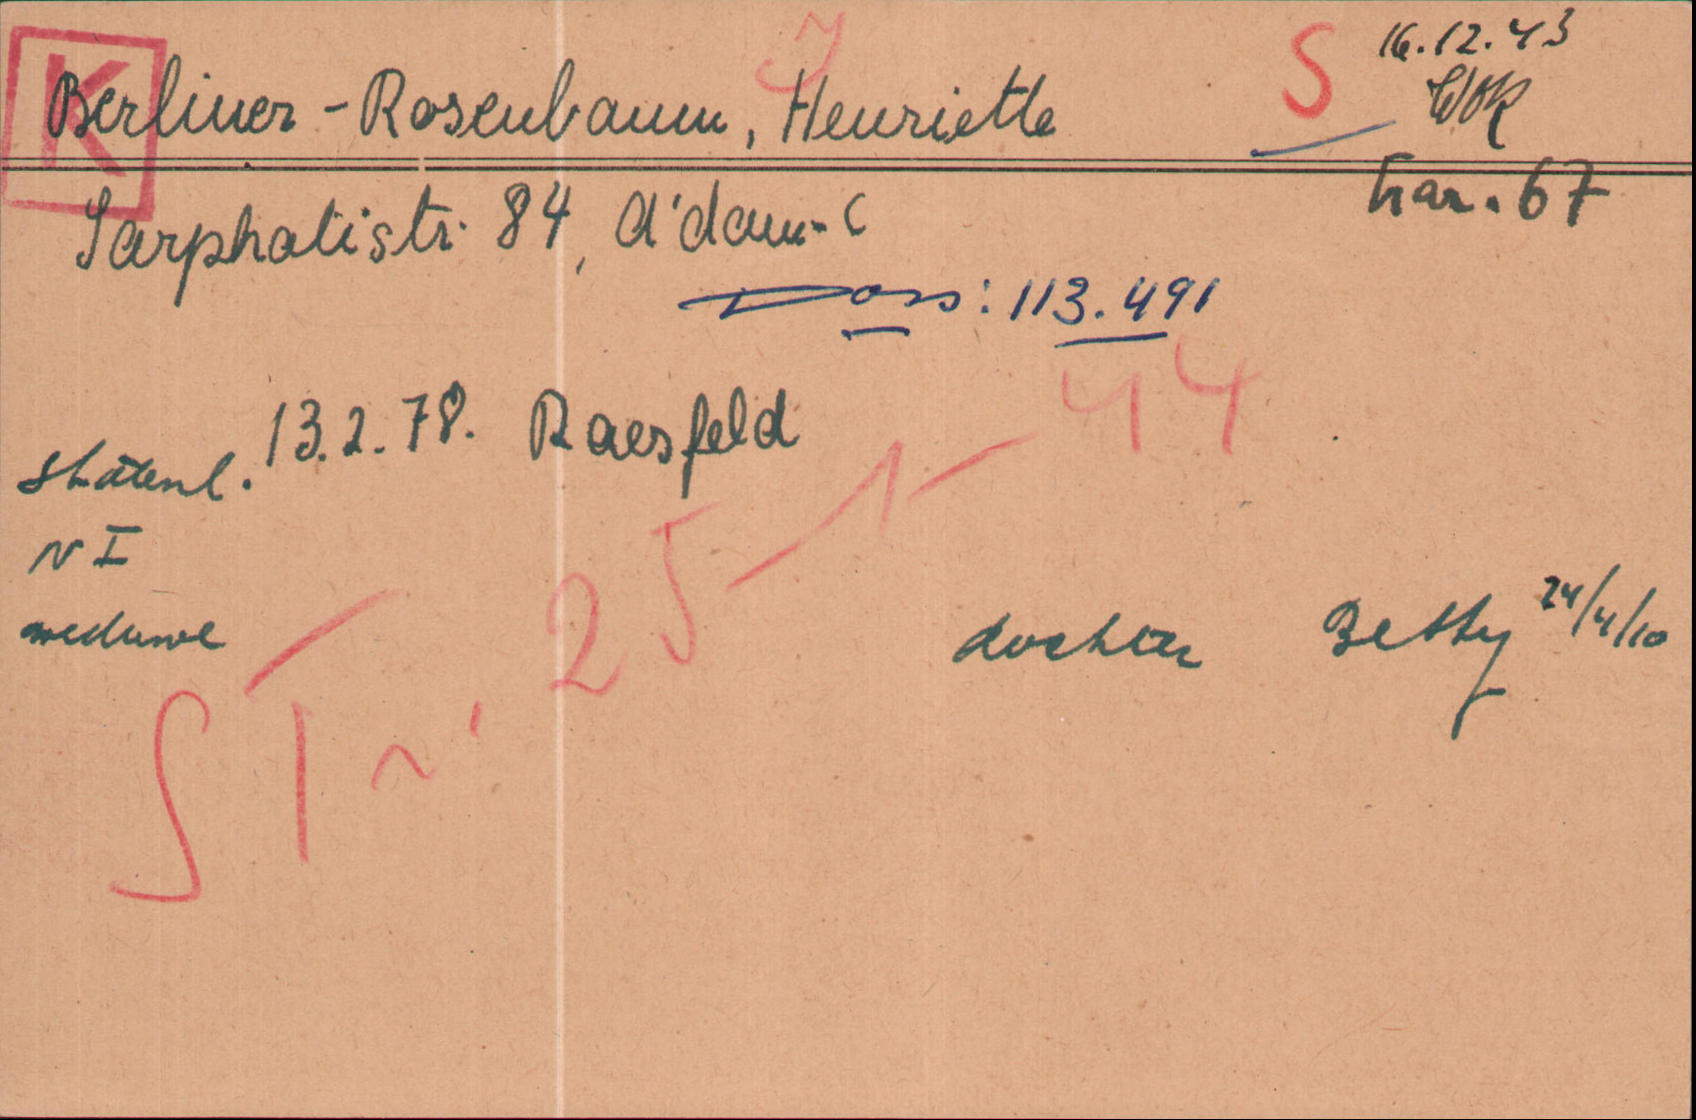 K
J
S
16.12.43
Berliner-Rosenbaum, Henriette
WBK
bar. 67
Sarphatistr. 84, A'dam-C
Doss: 113.491
13.2.78. Raesfeld
statenl.
N I
weduwe
dochter Betty 24/4/10
25-1-44